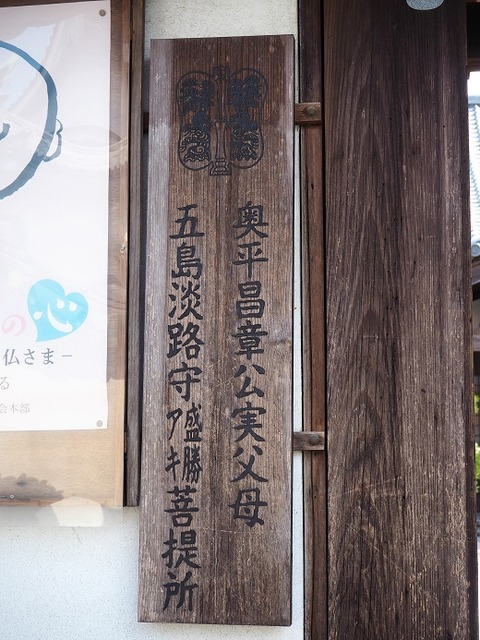 奥平昌章公実父母
五島淡路守盛勝菩提所
アキ
の
仏さま－
る
会本部